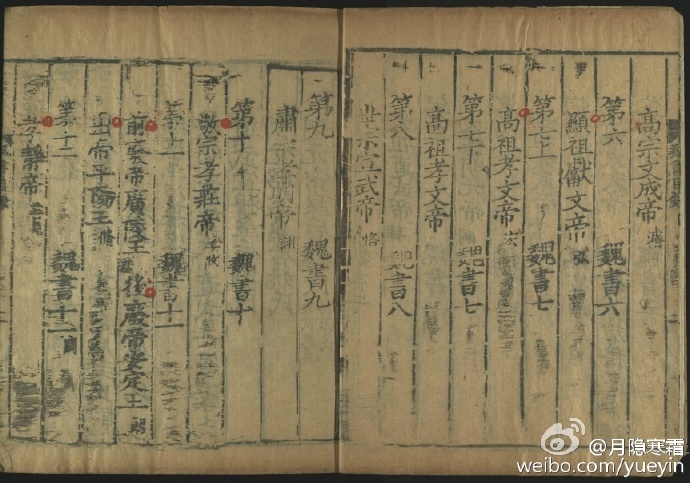 高宗文成帝 濬
第六 魏書六
顯祖獻文帝 弘
第七上 魏書七
高祖孝文帝 宏
第七下 魏書七
高祖孝文帝
第八 魏書八
世宗宣武帝 恪
第九 魏書九
肅宗 帝 詡
第十 魏書十
敬宗孝莊帝 子攸
第十一 魏書十一
前廢帝廣陵王 後廢帝安定王 朗
出帝平陽王 脩
第十二 魏書十二
孝靜帝
@月隐寒霜
weibo.com/yueyin